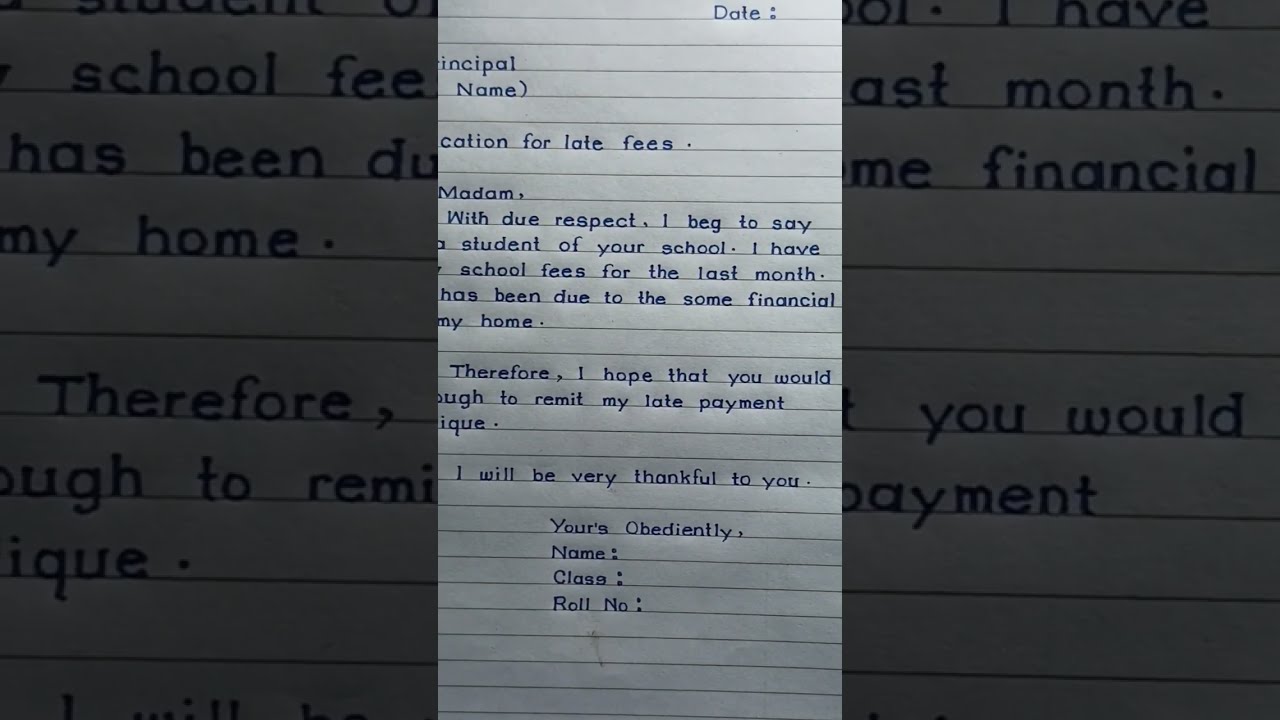 Date :
incipal
Name)
cation for late fees .
Madam,
With due respect, I beg to say
a student of your school. I have
school fees for the last month.
has been due to the some financial
my home .
Therefore, I hope that you would
ough to remit my late payment
ique .
I will be very thankful to you .
Your's Obediently,
Name :
Class :
Roll No :